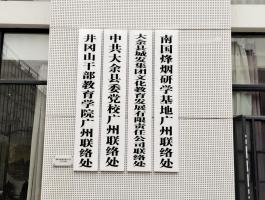 南国烽烟研学基地广州联络处
大余县城发集团文化教育发展有限责任公司联络处
中共大余县委党校广州联络处
井冈山干部教育学院广州联络处